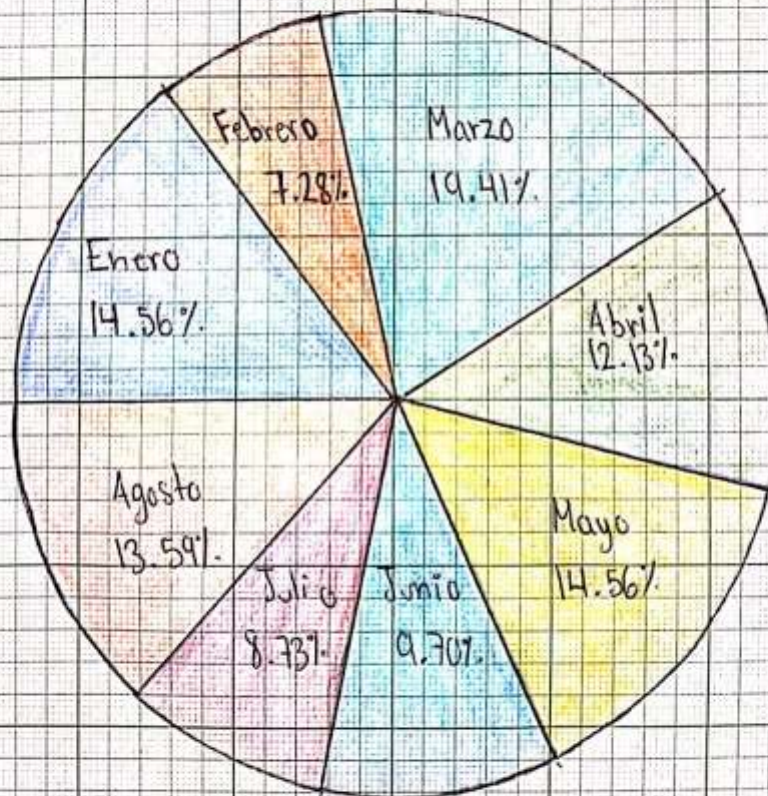 Febrero
7.28%
Marzo
19.41%
Enero
14.56%
Abril
12.13%
Agosto
13.59%
Mayo
14.56%
Julio
8.73%
Junio
9.70%